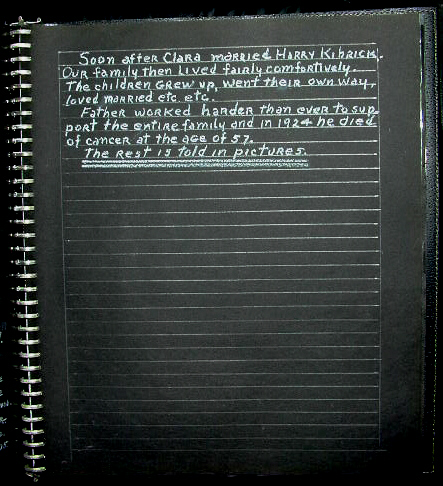 Soon after Clara married Harry Kibrick.
Our family then lived fairly comfortively.
The children grew up, went their own way,
loved married etc. etc.
Father worked harder than ever to sup-
port the entire family and in 1924 he died
of cancer at the age of 57.
The rest is told in pictures.